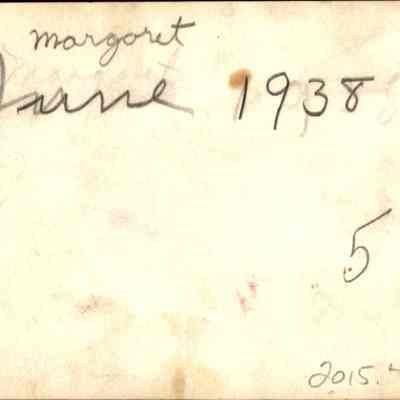 margaret
June 1938
5
2015.